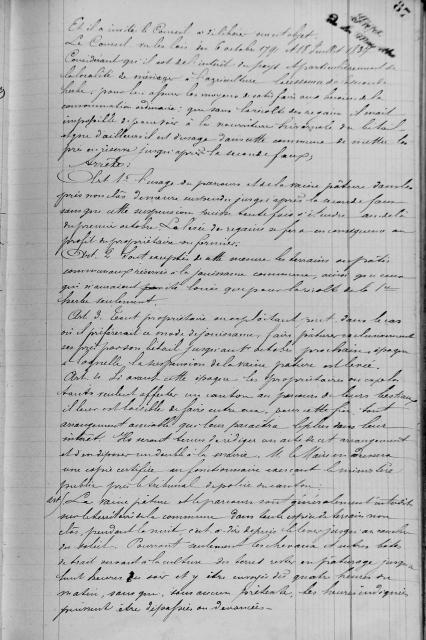 87
Et il a invité le Conseil, à délibérer sur cet objet.
Le Conseil vu les lois des 6 octobre 1791 et 18 Juillet 1837
Considérant qu'il est de l'intérêt du pays et particulièrement de
la localité de ménager à l'agriculture les ressources de la seconde
herbe, pour lui assurer les moyens de satisfaire aux besoins de la
consommation ; que sans la récolte des regains il serait
impossible de pourvoir à la nourriture hivernale du bétail
et que d'ailleurs il est d'usage dans cette commune de mettre les
prés en réserve jusqu'après la seconde faux,
Arrête:
Art. 1er L'usage du parcours et de la vaine pâture dans les
prés non clos demeure suspendu jusqu'après la seconde faux
sans que cette suspension puisse toutefois s'étendre au-delà
du premier octobre. La levée des regains se fera en conséquence au
profit du propriétaire ou fermier.
Art. 2. Sont exceptés de cette mesure les terrains en prairie
communaux réservés à la jouissance commune, ainsi que ceux
qui n'auraient été loués que pour la récolte de la 1ère
herbe seulement.
Art. 3. Tout propriétaire ou exploitant peut, dans le cas
où il préférerait ce mode de jouissance, faire pâturer exclusivement
ses prés par son bétail jusqu'au 1er octobre prochain, époque
à laquelle la suspension de la vaine pâture est levée.
Art. 4. Si avant cette époque, les propriétaires ou exploi-
tants veulent affecter un canton au parcours de leurs bestiaux
il leur est loisible de faire entre eux, pour cette fin, tout
arrangement amiable qui leur paraîtra utile dans leur
intérêt. Ils seront tenus de rédiger un acte de cet arrangement
et d'en déposer un double à la mairie. M. le Maire en adressera
une copie certifiée au fonctionnaire exerçant le ministère
public près le tribunal de police du canton.
La vaine pâture et le parcours sont généralement interdits
sur le territoire de la commune dans toute espèce de terrain non
clos, pendant la nuit, c'est à dire depuis le lever jusqu'au coucher
du soleil. Pourront seulement les chevaux et autres bêtes
de trait servant à la culture des terres rester en pâturage jusqu'à
huit heures du soir et y être envoyés dès quatre heures du
matin, sans que, sous aucun prétexte, les heures indiquées
puissent être dépassées ou devancées.